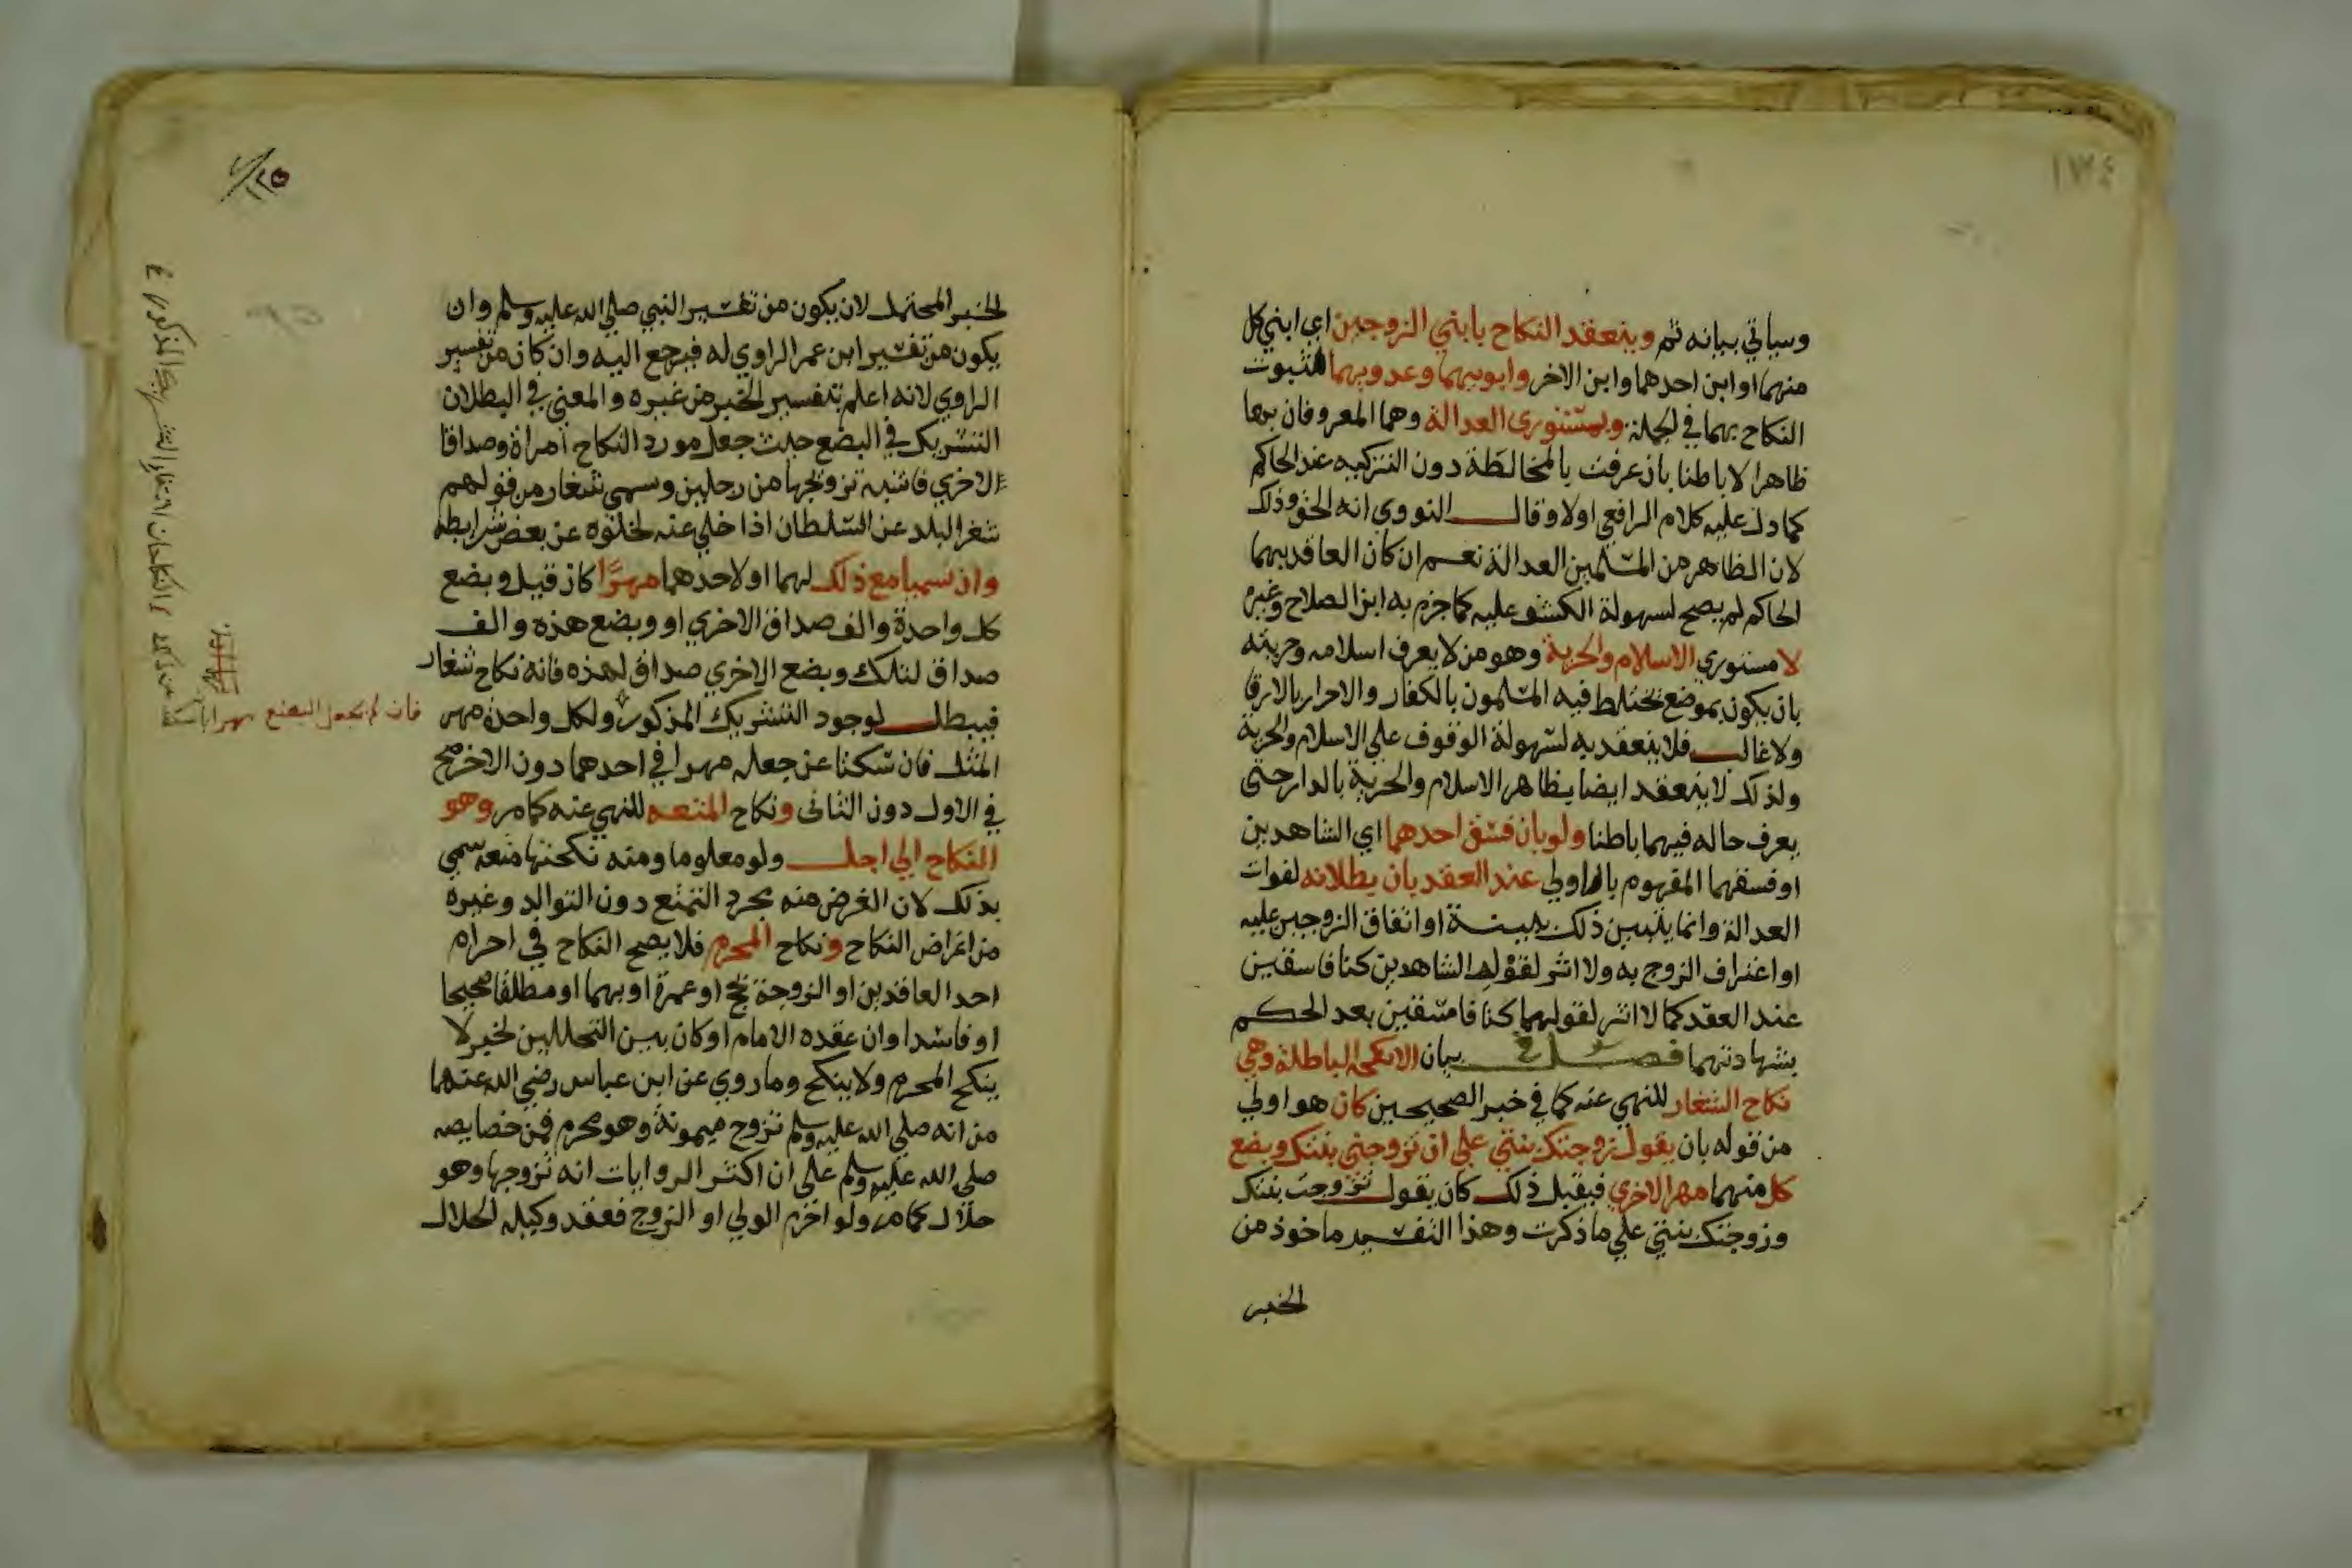 ١٧٤
وسياتي بيانه ثم وينعقد النكاح بابني الزوجين اي ابني كل
منهما او ابن احدهما وابن الاخر وابويهما وعدويهما لثبوت
النكاح بهما في الجملة وبمستوري العدالة وهما المعروفان بها
ظاهرا لا باطنا بان عرفت بالمخالطة دون التزكيه عند الحاكم
كما دل عليه كلام الرافعي اولا وقال النووي انه الحق وذلك
لان الظاهر من المسلمين العدالة نعم ان كان العاقد بهما
الحاكم لم يصح لسهولة الكشف عليه كما جزم به ابن الصلاح وغيره
لا مستوري الاسلام والحرية وهو من لا يعرف اسلامه وحريته
بان يكون بموضع يختلط فيه المسلمون بالكفار والاحرار بالارقا
ولا غالب فلا ينعقد به لسهولة الوقوف علي الاسلام والحرية
ولذلك لا ينعقد ايضا بظاهر الاسلام والحرية بالدار حتي
يعرف حاله فيهما باطنا ولو بان فسق احدهما اي الشاهدين
او فسقهما المفهوم بالاولي عند العقد بان بطلانه لفوات
العدالة وانما يتبين ذلك ببينة او اتفاق الزوجين عليه
او اعتراف الزوج به ولا اثر لقول الشاهدين كنا فاسقين
عند العقد كما لا اثر لقولهما كنا فاسقين بعد الحكم
بشهادتهما فصل في بيان الانكحة الباطلة وهي
نكاح الشغار للنهي عنه كما في خبر الصحيحين كان هو اولي
من قوله بان يقول زوجتك بنتي علي ان تزوجني بنتك وبضع
كل منهما مهر الاخري فيقبل ذلك كان يقول تزوجت بنتك
وزوجتك بنتي علي ما ذكرت وهذا التفسير ماخوذ من
الخبر
١٢٥
الخبر المحتمل لان يكون من تفسير النبي صلي الله عليه وسلم وان
يكون من تفسير ابن عمر الراوي له فيرجع اليه وان كان من تفسير
الراوي لانه اعلم بتفسير الخبر من غيره والمعني في البطلان
التشريك في البضع حيث جعل مورد النكاح امراة وصداقا
الاخري فاشبه تزويجها من رجلين وسمي شغار من قولهم
شغر البلد عن السلطان اذا خلي عنه لخلوه عن بعض شرايطه
وان سميا مع ذلك لهما او لاحدهما مهرًا كان قيل وبضع
كل واحدة والف صداق الاخري او وبضع هذه والف
صداق لتلك وبضع الاخري صداق لهذه فانه نكاح شغار
فيبطل لوجود التشريك المذكور ولكل واحدة مهر
المثل فان سكتا عن جعله مهرا في احدهما دون الاخر صح
في الاول دون الثاني ونكاح المتعه للنهي عنه كما مر وهو
النكاح الي اجل ولو معلوما ومنه نكحتها متعه سمي
بذلك لان الغرض منه مجرد التمتع دون التوالد وغيره
من اغراض النكاح ونكاح المحرم فلا يصح النكاح في احرام
احد العاقدين او الزوجة بحج او عمرة او بهما او مطلقا صحيحا
او فاسدا وان عقده الامام او كان بين التحللين لخبر لا
ينكح المحرم ولا ينكح وما روي عن ابن عباس رضي الله عنهما
من انه صلي الله عليه وسلم تزوج ميمونة وهو محرم فمن خصايصه
صلي الله عليه وسلم علي ان اكثر الروايات انه تزوجها وهو
حلال كما مر ولو احرم الولي او الزوج فعقد وكيله الحلال
فان لم يجعل البضع مهرا بان